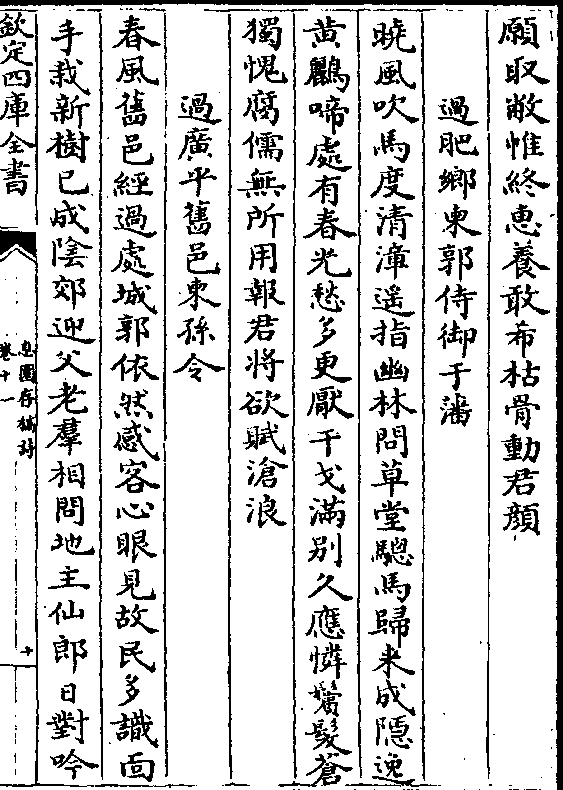 願取敝惟終恵養敢希枯骨動君顔
過肥鄉柬郭侍御于藩
曉風吹馬度清漳遥指幽林問草堂驄馬歸来成隠逸
黄鸝啼處有春光愁多更厭干戈滿别久應憐鬢髪蒼
獨愧腐儒無所用報君将欲賦滄浪
過廣平舊邑柬孫令
春風舊邑經過處城郭依然感客心眼見故民多識面
手栽新樹已成陰郊迎父老羣相問地主仙郎日對吟
欽定四庫全書
皇圃存稿詩
卷十一
十